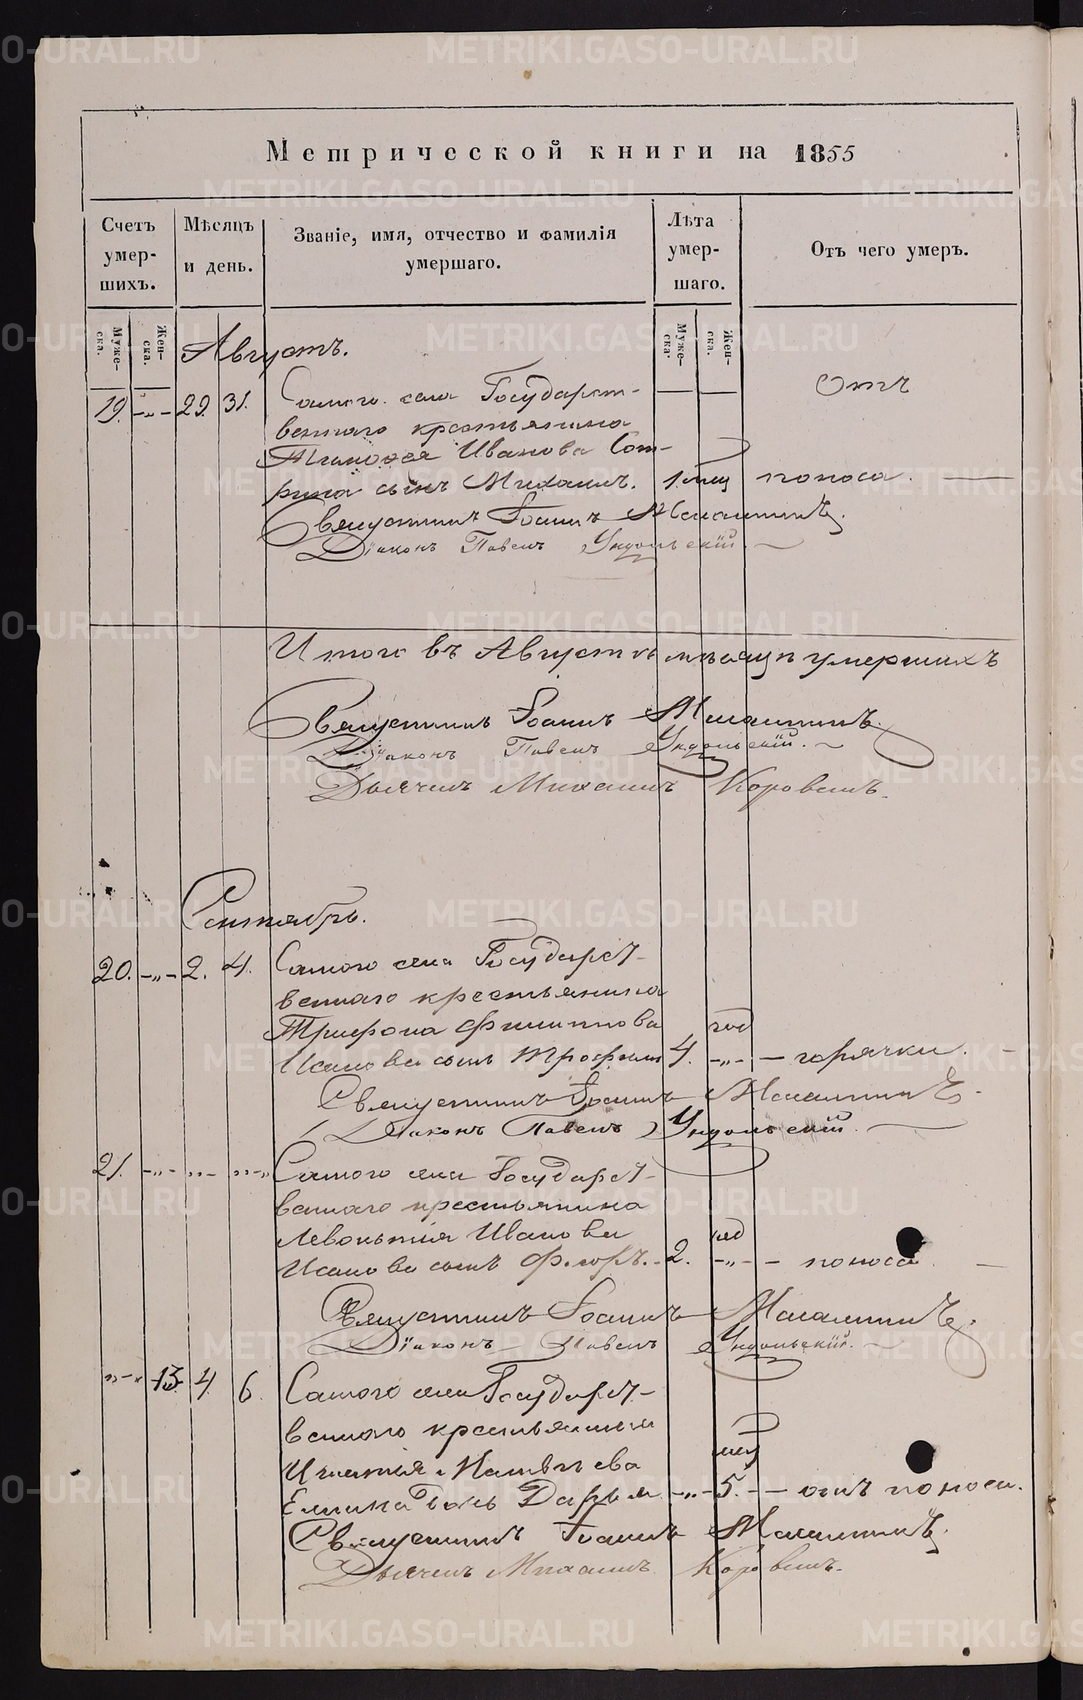 Метрической книги на 1855
Счетъ умер-шихъ.
Мѣсяцъ и день.
Званіе, имя, отчество и фамилія умершаго.
Лѣта умер-шаго.
Отъ чего умеръ.
Муже-ска.
Жен-ска.
Муже-ска.
Жен-ска.
Августъ.
19. -„- 29. 31. Самого села Государст- Отъ
веннаго крестьянина
Тимофея Иванова
рина сынъ Михаилъ. 1 мец поноса.
Священникъ Іоаннъ
Діаконъ Павелъ Ундольскій.
Итого въ Августѣ мѣсяцѣ умершихъ
Священникъ Іоаннъ
Діаконъ Павелъ Ундольскій.
Дьячекъ Михаилъ Коровинъ.
Сентябрь.
20. -„- 2. 4. Самого села Государст-
веннаго крестьянина
Трифона Филиппова год
Исакова сынъ Трофимъ 4. -„- - горячки.
Священникъ Іоаннъ
Діаконъ Павелъ Ундольскій.
21. -„- -„- -„- Самого села Государст-
веннаго крестьянина
Левонтія Иванова год
Исакова сынъ Ѳедоръ. 2. -„- - поноса
Священникъ Іоаннъ
Діаконъ Павелъ Ундольскій.
-„- 13 4. 6. Самого села Государст-
веннаго крестьянина
Игнатія Матвѣева мец
дочь Дарья. -„- 5. - отъ поноса.
Священникъ Іоаннъ
Дьячекъ Михаилъ Коровинъ.
METRIKI.GASO-URAL.RU